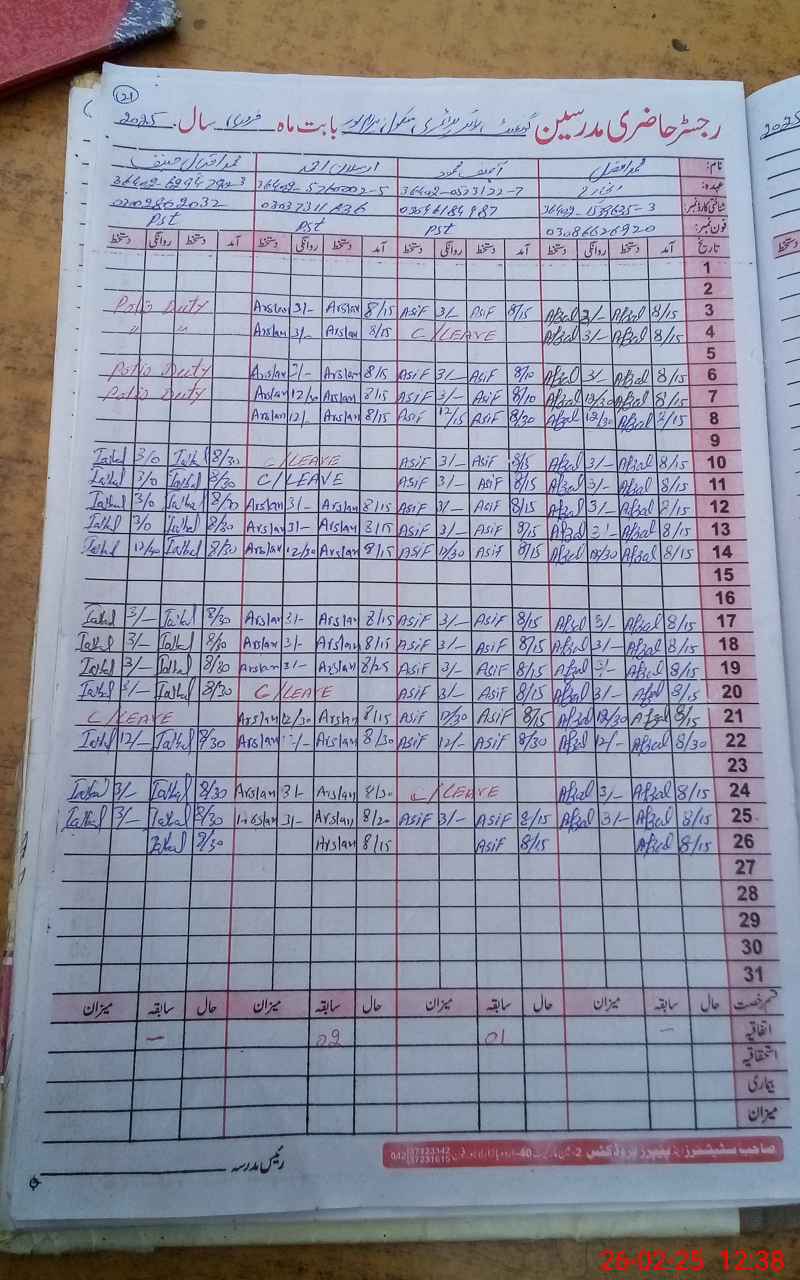 (21)
رجسٹر حاضری مدرسین گورنمنٹ پرائمری سکول بابت ماہ فروری سال 2025
نام: محمد افضل آصف محمود ارسلان احمد محمد اقبال حنیف
عہدہ: 36402-0573122-7 36402-5760002-5
شناختی کارڈ نمبر: 36402-1559635-3 03037311836
فون نمبر: 03086626920 Pst Pst Pst
تاریخ آمد دستخط روانگی دستخط آمد دستخط روانگی دستخط آمد دستخط روانگی دستخط آمد دستخط روانگی دستخط
1
2
Polio Duty Arslan 3/- Arslan 8/15 Asif 3/- Asif 8/15 Afzal 3/- Afzal 8/15 3
" " Arslan 3/- Arslan 8/15 C/LEAVE Afzal 3/- Afzal 8/15 4
5
Polio Duty Arslan 3/- Arslan 8/15 Asif 3/- Asif 8/10 Afzal 3/- Afzal 8/15 6
Polio Duty Arslan 12/30 Arslan 8/15 Asif 3/- Asif 8/10 Afzal 12/30 Afzal 8/15 7
Arslan 12/- Arslan 8/15 Asif 12/15 Asif 8/30 Afzal 12/30 Afzal 8/15 8
9
Iqbal 3/0 Iqbal 8/30 C/LEAVE Asif 3/- Asif 8/15 Afzal 3/- Afzal 8/15 10
Iqbal 3/0 Iqbal 8/30 C/LEAVE Asif 3/- Asif 8/15 Afzal 3/- Afzal 8/15 11
Iqbal 3/0 Iqbal 8/30 Arslan 3/- Arslan 8/15 Asif 3/- Asif 8/15 Afzal 3/- Afzal 8/15 12
Iqbal 3/0 Iqbal 8/30 Arslan 3/- Arslan 8/15 Asif 3/- Asif 8/15 Afzal 3/- Afzal 8/15 13
Iqbal 12/30 Iqbal 8/30 Arslan 12/30 Arslan 8/15 Asif 12/30 Asif 8/15 Afzal 12/30 Afzal 8/15 14
15
16
Iqbal 3/- Iqbal 8/30 Arslan 3/- Arslan 8/15 Asif 3/- Asif 8/15 Afzal 3/- Afzal 8/15 17
Iqbal 3/- Iqbal 8/30 Arslan 3/- Arslan 8/15 Asif 3/- Asif 8/15 Afzal 3/- Afzal 8/15 18
Iqbal 3/- Iqbal 8/30 Arslan 3/- Arslan 8/25 Asif 3/- Asif 8/15 Afzal 3/- Afzal 8/15 19
Iqbal 3/- Iqbal 8/30 C/LEAVE Asif 3/- Asif 8/15 Afzal 3/- Afzal 8/15 20
C/LEAVE Arslan 12/30 Arslan 8/15 Asif 12/30 Asif 8/15 Afzal 12/30 Afzal 8/15 21
Iqbal 12/- Iqbal 8/30 Arslan Arslan 8/30 Asif 12/- Asif 8/30 Afzal 12/- Afzal 8/30 22
23
Iqbal 3/- Iqbal 8/30 Arslan 3/- Arslan 8/30 C/LEAVE Afzal 3/- Afzal 8/15 24
Iqbal 3/- Iqbal 8/30 Arslan 3/- Arslan 8/20 Asif 3/- Asif 8/15 Afzal 3/- Afzal 8/15 25
Iqbal 8/30 Arslan 8/15 Asif 8/15 Afzal 8/15 26
27
28
29
30
31
قسم رخصت حال سابقہ میزان حال سابقہ میزان حال سابقہ میزان حال سابقہ میزان
اتفاقیہ - 01 02 -
استحقاقیہ
بیماری
میزان
صاحب سٹیشنرز اینڈ پیپرز پروڈکٹس
042 37123342 37231615
رئیس مدرسہ
2025
دستخط
26-02-25 12:38